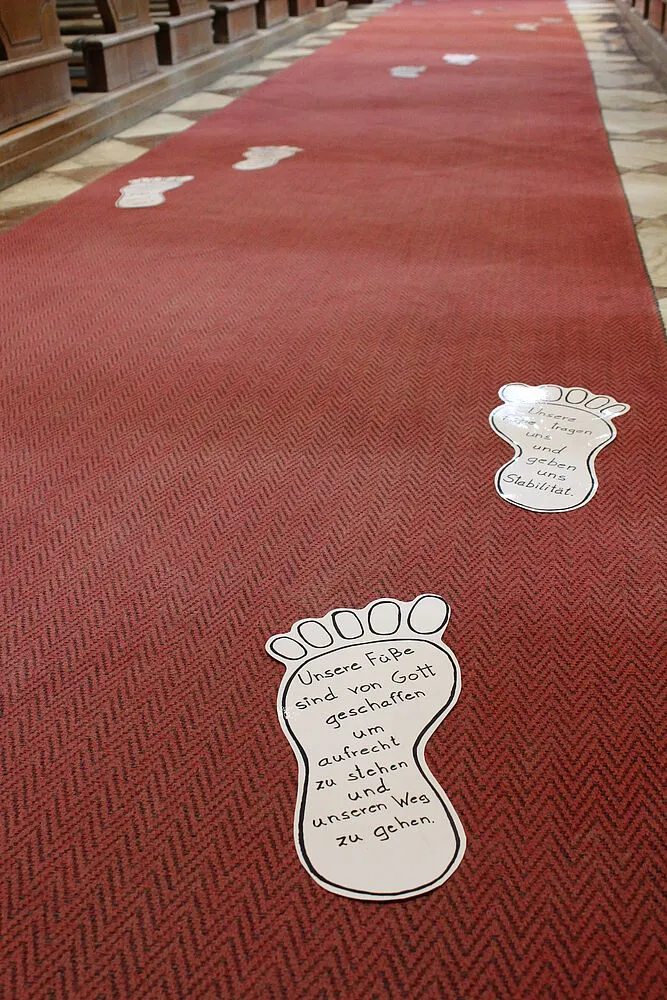 Unsere
Füße tragen
uns
und
geben
uns
Stabilität.
Unsere Füße
sind von Gott
geschaffen
um
aufrecht
zu stehen
und
unseren Weg
zu gehen.